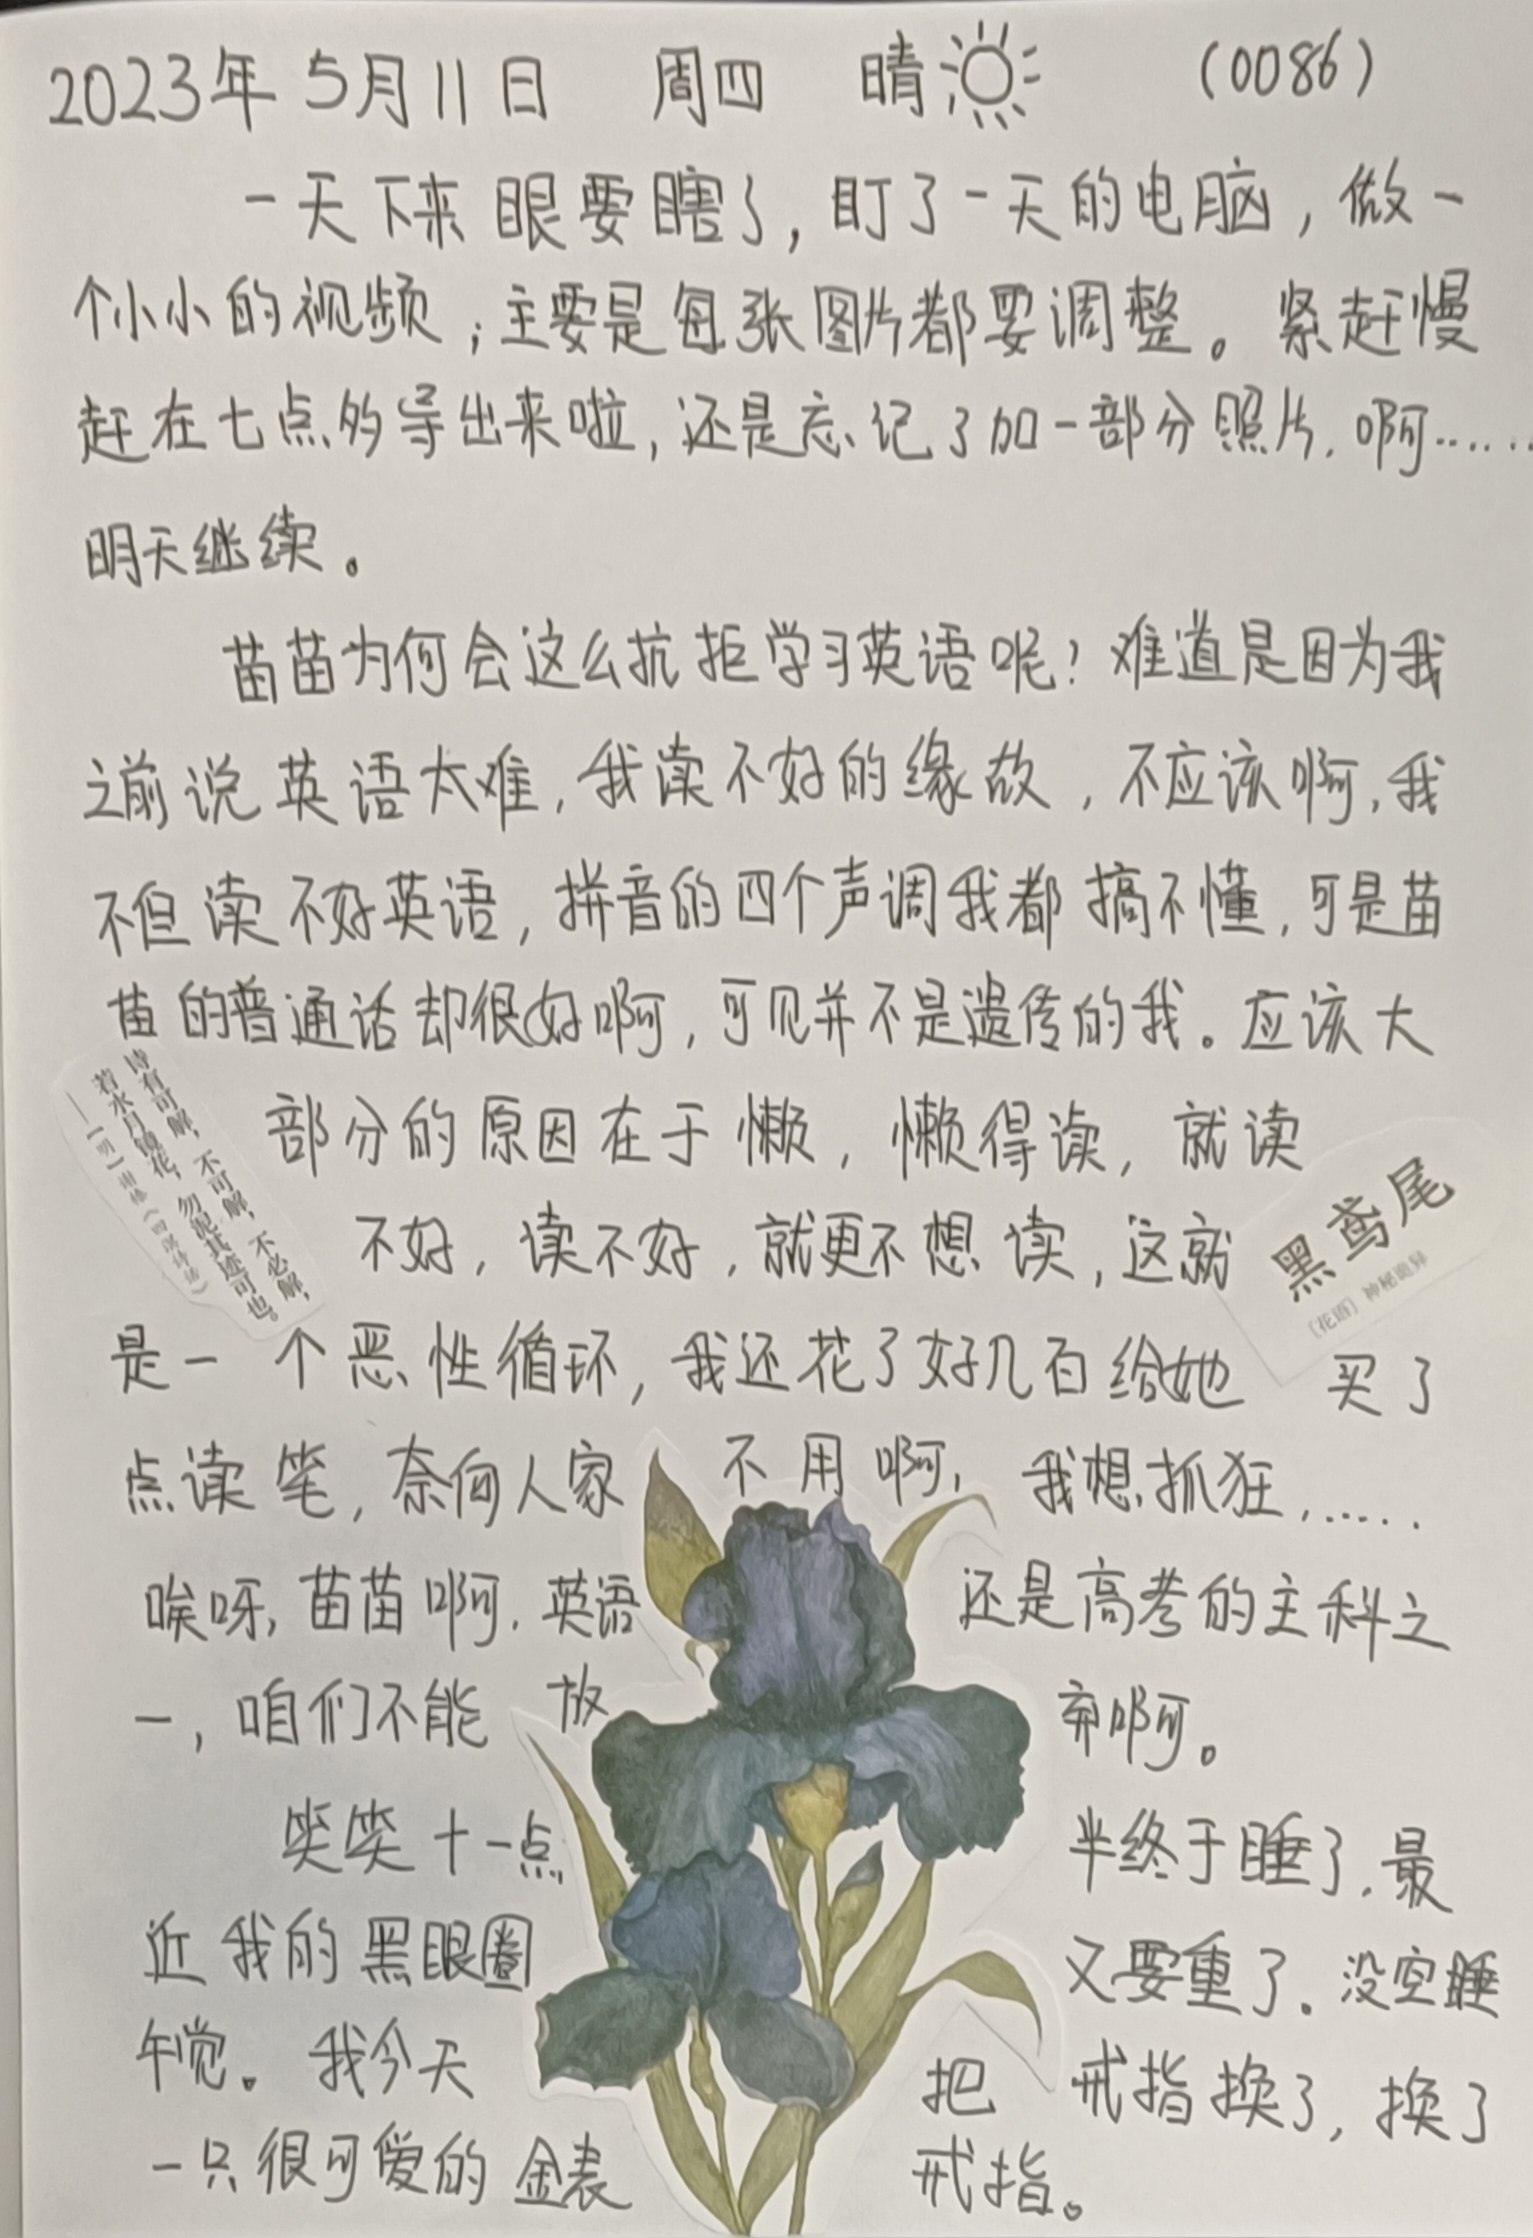 2023年5月11日 周四 晴 (0086)
一天下来眼要瞎了，盯了一天的电脑，做一
个小小的视频；主要是每张图片都要调整。紧赶慢
赶在七点的导出来啦，还是忘记了加一部分照片，啊……
明天继续。
苗苗为何会这么抗拒学习英语呢？难道是因为我
之前说英语太难，我读不好的缘故，不应该啊，我
不但读不好英语，拼音的四个声调我都搞不懂，可是苗
苗的普通话却很好啊，可见并不是遗传的我。应该大
部分的原因在于懒，懒得读，就读
不好，读不好，就更不想读，这就
是一个恶性循环，我还花了好几百给她买了
点读笔，奈何人家不用啊，我想抓狂……
唉呀，苗苗啊，英语还是高考的主科之
一，咱们不能放弃啊。
笑笑十一点半终于睡了，最
近我的黑眼圈又要重了。没空睡
午觉。我今天把戒指换了，换了
一只很可爱的金表戒指。
诗有可解，不可解，不必解，
若水月镜花，勿泥其迹可也。
——［明］谢榛《四溟诗话》
黑鸢尾
［花语］神秘诡异